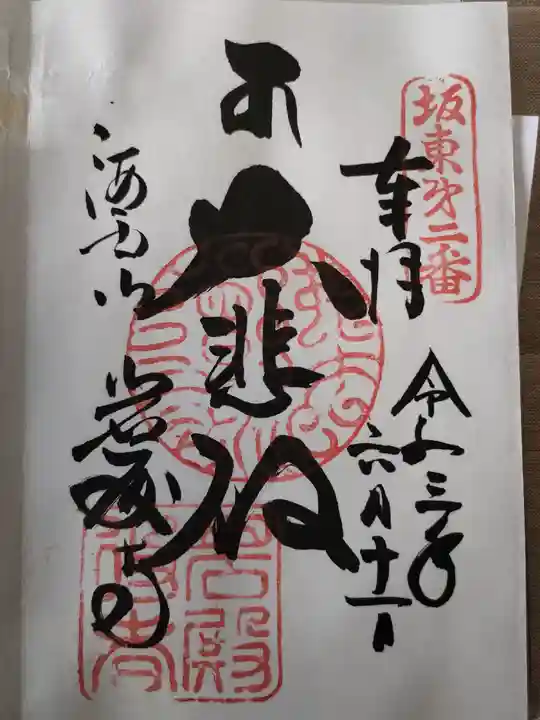 坂東第二番
奉拝
令和三年
六月十一日
大悲殿
海雲山
岩殿寺
岩殿